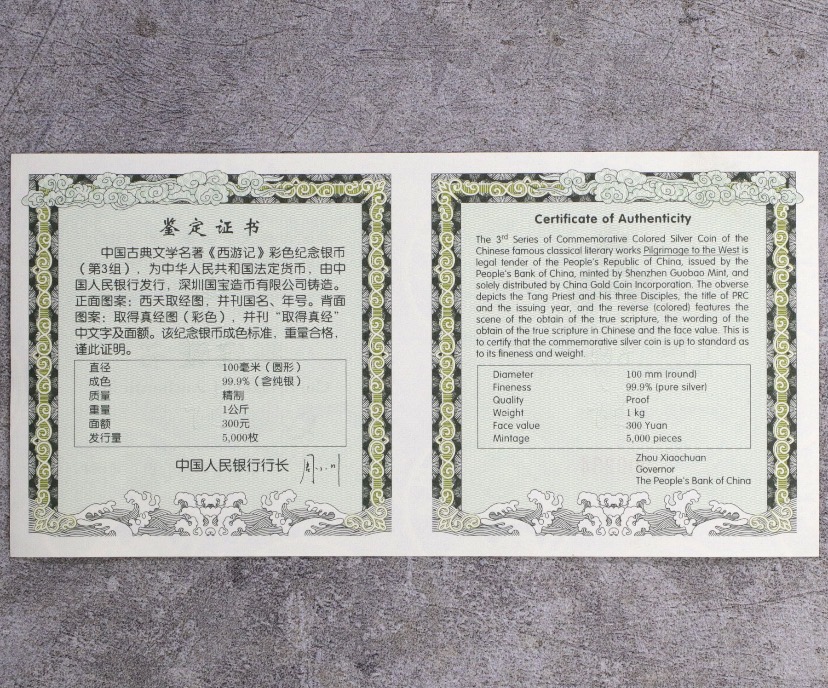 鉴定证书
中国古典文学名著《西游记》彩色纪念银币
（第3组），为中华人民共和国法定货币，由中
国人民银行发行，深圳国宝造币有限公司铸造。
正面图案：西天取经图，并刊国名、年号。背面
图案：取得真经图（彩色），并刊“取得真经”
中文字及面额。该纪念银币成色标准，重量合格，
谨此证明。
直径 100毫米（圆形）
成色 99.9%（含纯银）
质量 精制
重量 1公斤
面额 300元
发行量 5,000枚
中国人民银行行长
Certificate of Authenticity
The 3rd Series of Commemorative Colored Silver Coin of the
Chinese famous classical literary works Pilgrimage to the West is
legal tender of the People's Republic of China, issued by the
People's Bank of China, minted by Shenzhen Guobao Mint, and
solely distributed by China Gold Coin Incorporation. The obverse
depicts the Tang Priest and his three Disciples, the title of PRC
and the issuing year, and the reverse (colored) features the
scene of the obtain of the true scripture, the wording of the
obtain of the true scripture in Chinese and the face value. This is
to certify that the commemorative silver coin is up to standard as
to its fineness and weight.
Diameter 100 mm (round)
Fineness 99.9% (pure silver)
Quality Proof
Weight 1 kg
Face value 300 Yuan
Mintage 5,000 pieces
Zhou Xiaochuan
Governor
The People's Bank of China